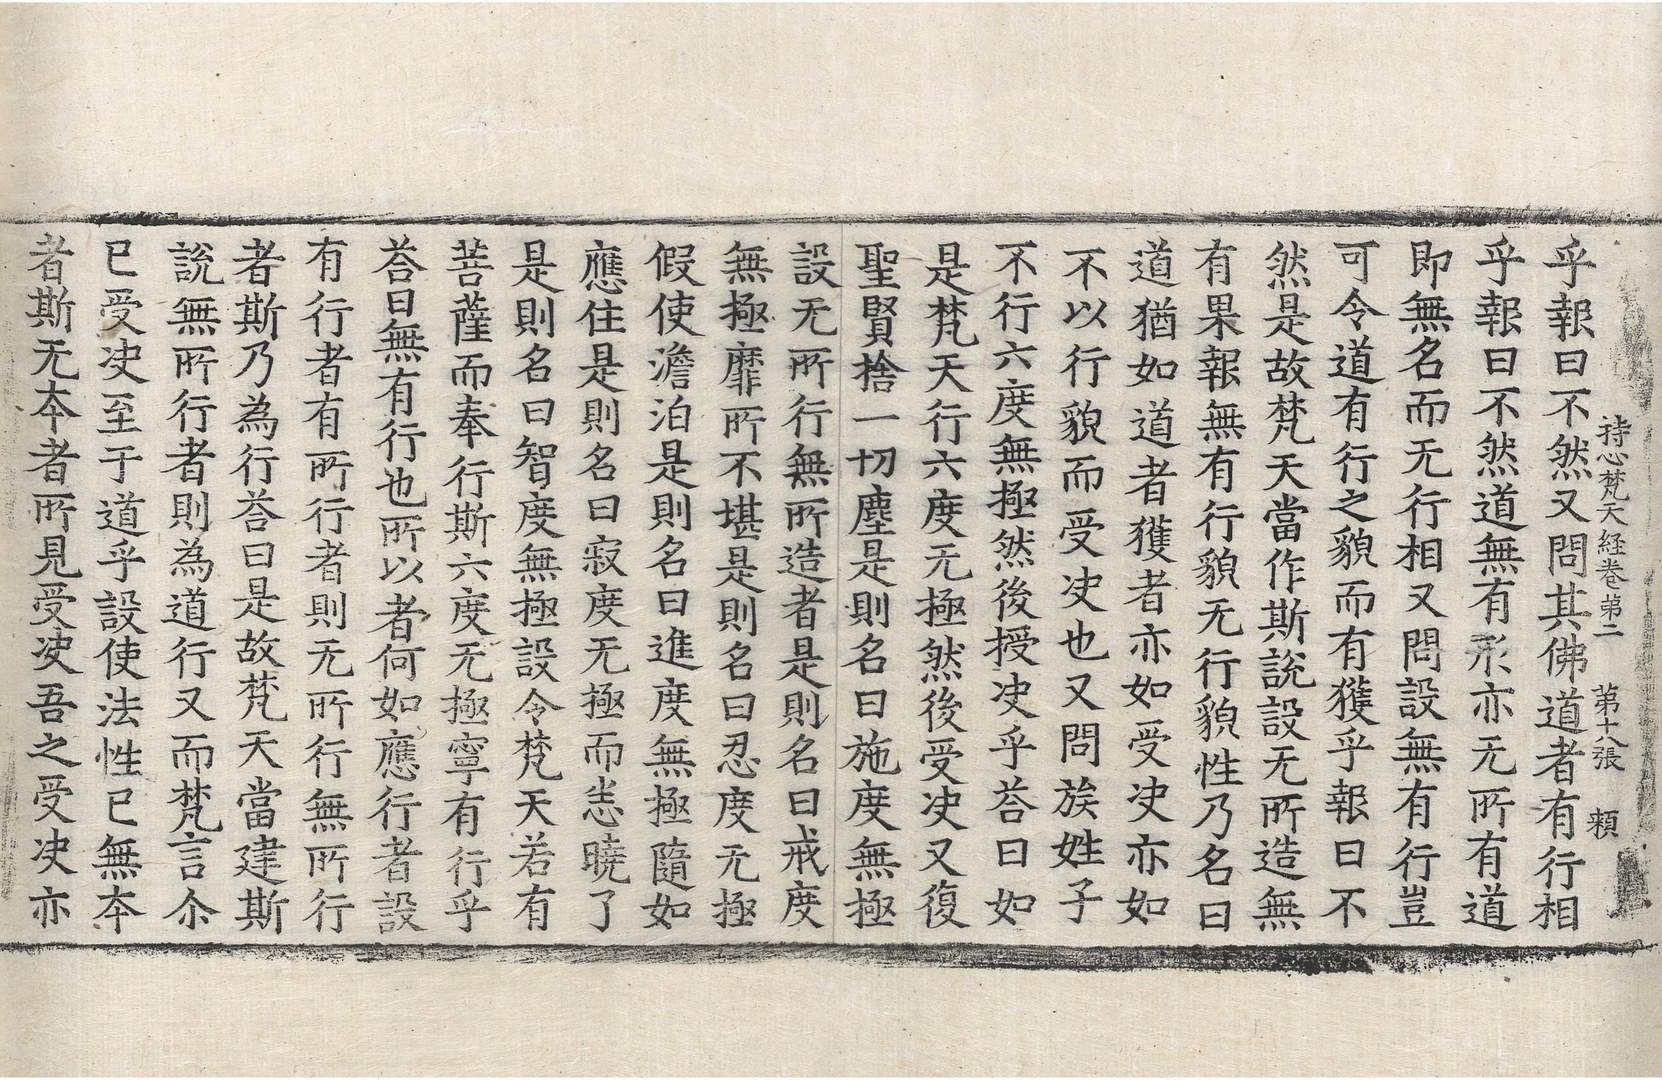 持心梵天経卷第二　第十八張　頼
乎報曰不然又問其佛道者有行相
乎報曰不然道無有形亦无所有道
即無名而无行相又問設無有行豈
可令道有行之貌而有獲乎報曰不
然是故梵天當作斯說設无所造無
有果報無有行貌无行貌性乃名曰
道猶如道者獲者亦如受决亦如
不以行貌而受决也又問族姓子
不行六度無極然後授决乎荅曰如
是梵天行六度无極然後受决又復
聖賢捨一切塵是則名曰施度無極
設无所行無所造者是則名曰戒度
無極靡所不堪是則名曰忍度无極
假使澹泊是則名曰進度無極隨如
應住是則名曰寂度无極而悉曉了
是則名曰智度無極設令梵天若有
菩薩而奉行斯六度无極寧有行乎
荅曰無有行也所以者何如應行者設
有行者有所行者則无所行無所行
者斯乃為行荅曰是故梵天當建斯
說無所行者則為道行又而梵言尒
已受决至于道乎設使法性已無夲
者斯无夲者所見受决吾之受决亦